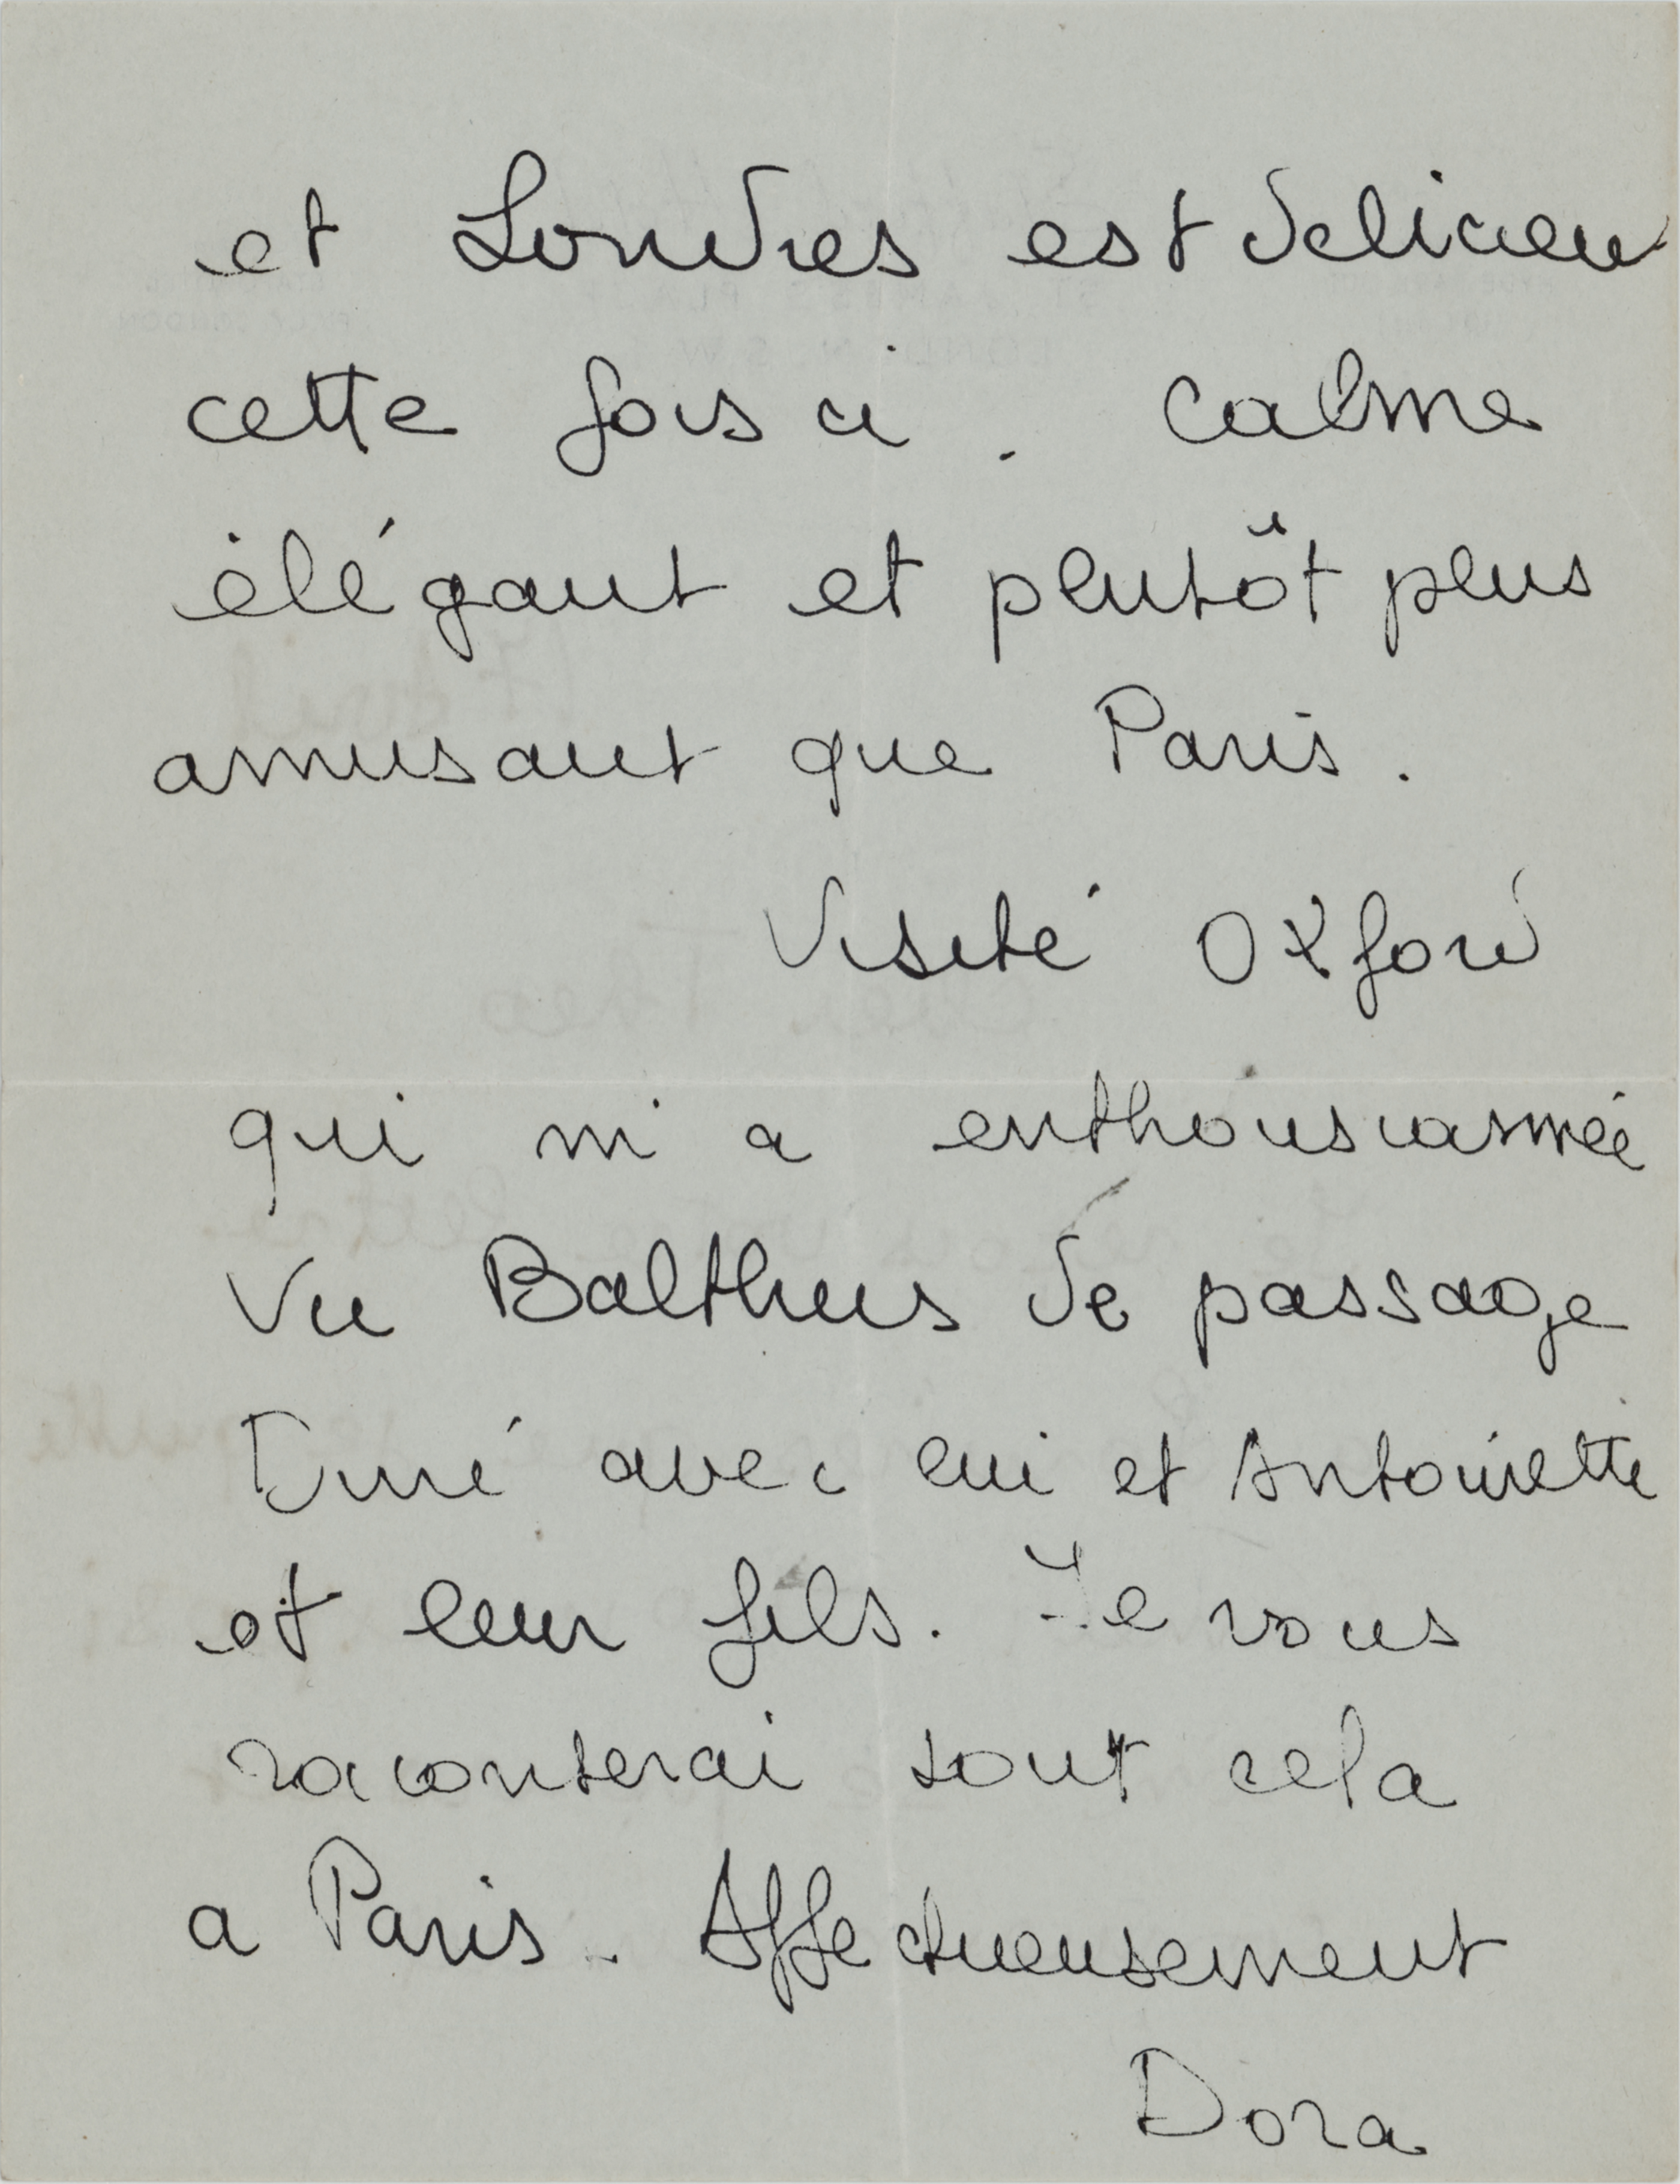 et Londres est delicieux
cette fois ci. Calme
élégant et plutôt plus
amusant que Paris.
Visité Oxford
qui m'a enthousiasmée
Vu Balthus de passage
Diné avec lui et Antoinette
et leur fils. Je vous
raconterai tout cela
a Paris. Affectueusement
Dora